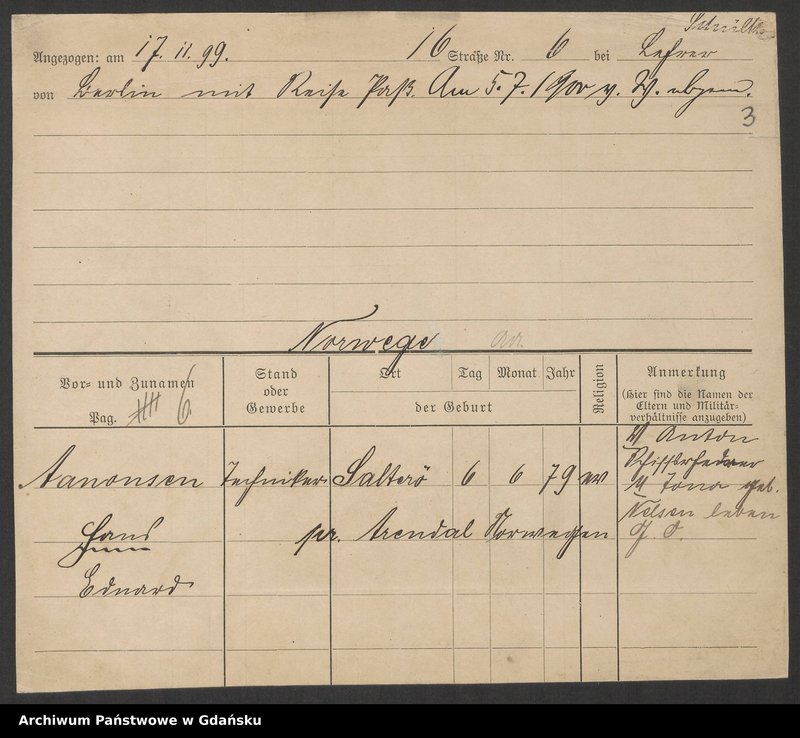 Angezogen: am 17. 11. 99. 16 Straße Nr. 6 bei
von Berlin mit Reise Paß. Am 5. 7. 1900 n. W. abgem.
3
Norwege
Vor- und Zunamen
Pag. 6.
Stand
oder
Gewerbe
Ort Tag Monat Jahr
der Geburt
Religion
Anmerkung
(Hier sind die Namen der
Eltern und Militär-
verhältnisse anzugeben)
Aanonsen Techniker Salterö 6 6 79 ev
V Anton
M geb.
Nelsen leben
Hans pr. Arendal Norwegen
Eduard
Archiwum Państwowe w Gdańsku